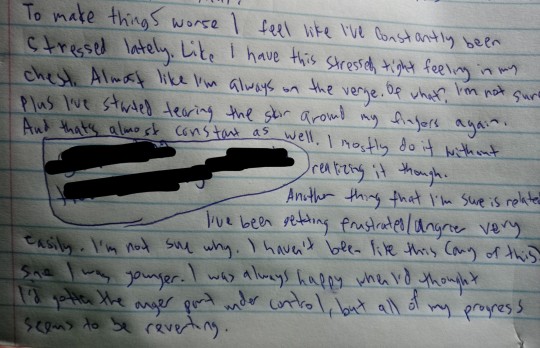 To make things worse I feel like I've constantly been
stressed lately. Like I have this stressed tight feeling in my
chest. Almost like I'm always on the verge. Of what? I'm not sure
plus I've started tearing the skin around my fingers again.
And that's almost constant as well. I mostly do it without
realizing it though.
Another thing that I'm sure is related
I've been getting frustrated/angrier very
easily. I'm not sure why. I haven't been like this (any of this)
since I was younger. I was always happy when I'd thought
I'd gotten the anger part under control, but all of my progress
seems to be reverting.